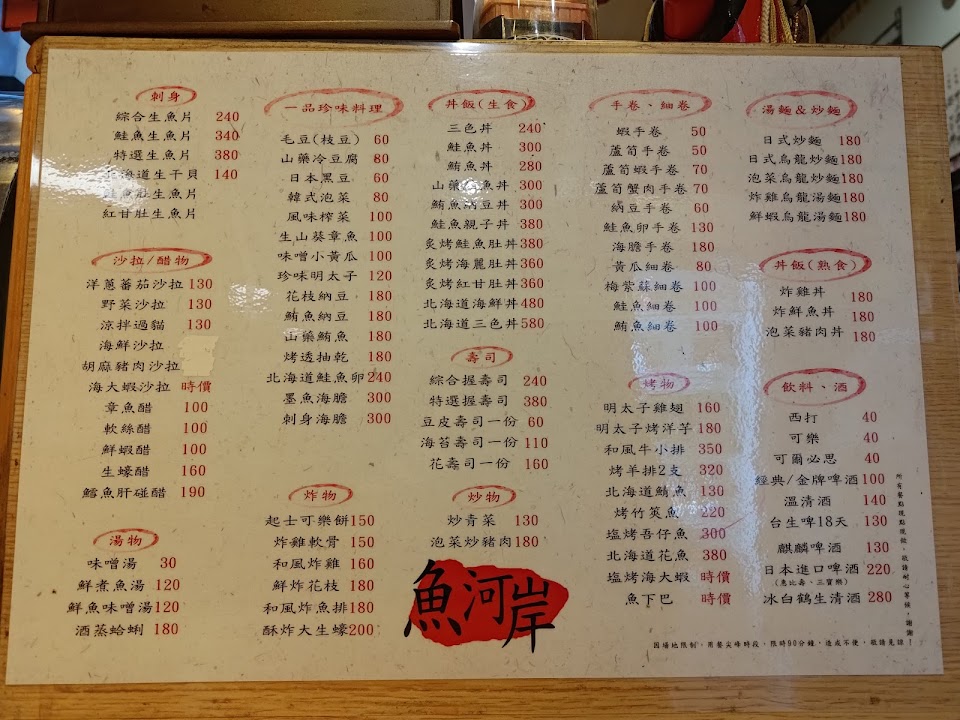 刺身
綜合生魚片 240
鮭魚生魚片 340
特選生魚片 380
海道生干貝 140
肚生魚片
紅甘肚生魚片
沙拉/醋物
洋蔥蕃茄沙拉 130
野菜沙拉 130
涼拌過貓 130
海鮮沙拉
胡麻豬肉沙拉
海大蝦沙拉 時價
章魚醋 100
軟絲醋 100
鮮蝦醋 100
生蠔醋 160
鱈魚肝碰醋 190
湯物
味噌湯 30
鮮煮魚湯 120
鮮魚味噌湯 120
酒蒸蛤蜊 180
一品珍味料理
毛豆(枝豆) 60
山藥冷豆腐 80
日本黑豆 60
韓式泡菜 80
風味榨菜 100
生山葵章魚 100
味噌小黃瓜 100
珍味明太子 120
花枝納豆 180
鮪魚納豆 180
山藥鮪魚 180
烤透抽乾 180
北海道鮭魚卵 240
墨魚海膽 300
刺身海膽 300
炸物
起士可樂餅 150
炸雞軟骨 150
和風炸雞 160
鮮炸花枝 180
和風炸魚排 180
酥炸大生蠔 200
丼飯(生食)
三色丼 240
鮭魚丼 300
鮪魚丼 280
山藥 魚丼 300
鮪魚納豆丼 300
鮭魚親子丼 380
炙烤鮭魚肚丼 380
炙烤海麗肚丼 360
炙烤紅甘肚丼 360
北海道海鮮丼 480
北海道三色丼 580
壽司
綜合握壽司 240
特選握壽司 380
豆皮壽司一份 60
海苔壽司一份 110
花壽司一份 160
炒物
炒青菜 130
泡菜炒豬肉 180
魚河岸
手卷、細卷
蝦手卷 50
蘆筍手卷 50
蘆筍蝦手卷 70
蘆筍蟹肉手卷 70
納豆手卷 60
鮭魚卵手卷 130
海膽手卷 180
黃瓜細卷 80
梅紫蘇細卷 100
鮭魚細卷 100
鮪魚細卷 100
烤物
明太子雞翅 160
明太子烤洋芋 180
和風牛小排 350
烤羊排2支 320
北海道鯖魚 130
烤竹筴魚 220
塩烤香仔魚 300
北海道花魚 380
塩烤海大蝦 時價
魚下巴 時價
湯麵&炒麵
日式炒麵 180
日式烏龍炒麵 180
泡菜烏龍炒麵 180
炸雞烏龍湯麵 180
鮮蝦烏龍湯麵 180
丼飯(熟食)
炸雞丼 180
炸鮮魚丼 180
泡菜豬肉丼 180
飲料、酒
西打 40
可樂 40
可爾必思 40
經典/金牌啤酒 100
溫清酒 140
台生啤18天 130
麒麟啤酒 130
日本進口啤酒 220
(惠比壽、三寶樂)
冰白鶴生清酒 280
所有餐點現點現做，敬請耐心等候，謝謝！
因場地限制，用餐尖峰時段，限時90分鐘，造成不便，敬請見諒！